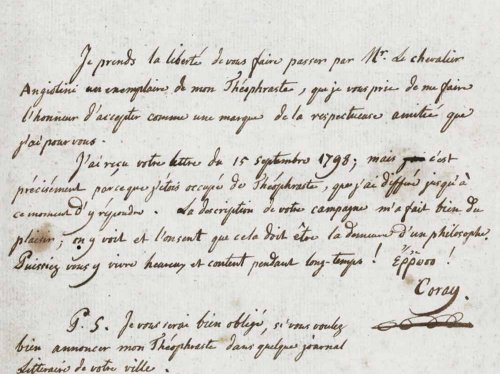 Je prends la liberté de vous faire passer par Mr. Le chevalier
Angistini un exemplaire de mon Théophraste, que je vous prie de me faire
l'honneur d'accepter comme une marque de la respectueuse amitié que
j'ai pour vous.
J'ai reçu votre lettre du 15 septembre 1798; mais c'est
précisément parceque j'etois occupé de Théophraste, que j'ai differé jusqu'à
ce moment d'y repondre. La description de votre campagne m'a fait bien du
plaisir; on y voit et l'on sent que cela doit être la demeure d'un philosophe.
Puissiez vous y vivre heureux et content pendant long-temps! ἔῤῥωσο!
Coray.
P. S. Je vous serai bien obligé, si vous voulez
bien annoncer mon Théophraste dans quelque journal
Litteraire de votre ville.